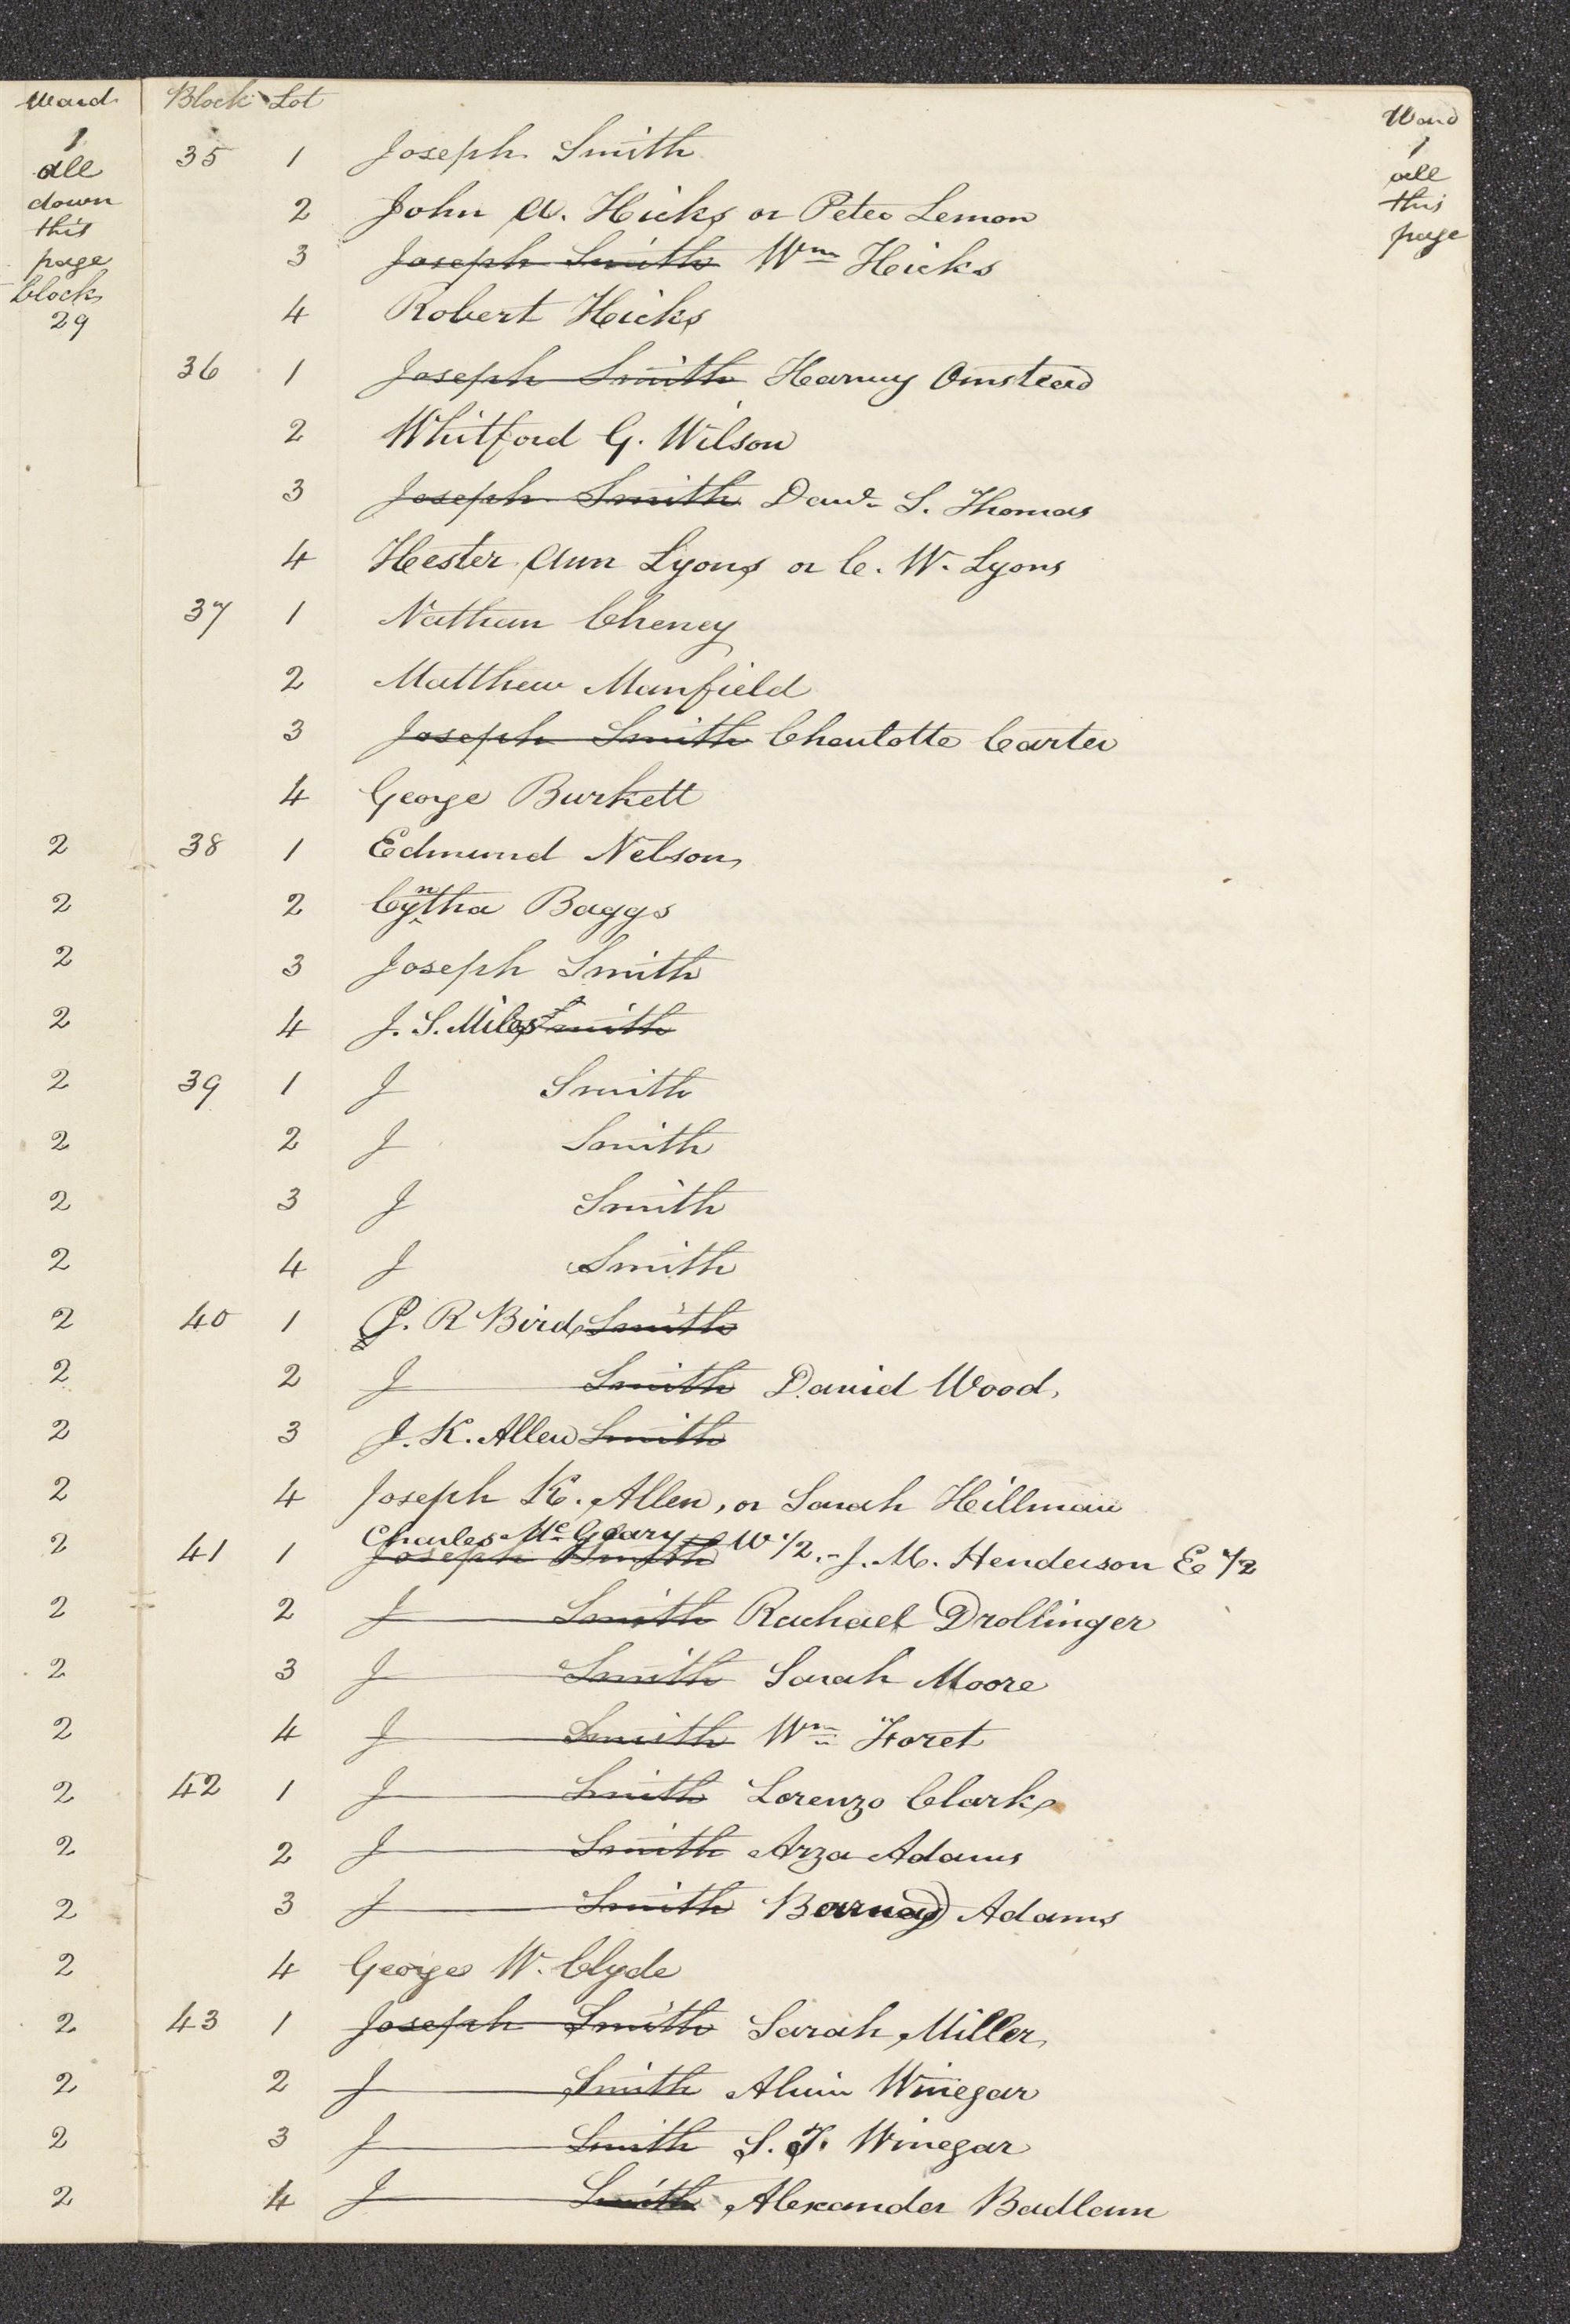 Ward Block Lot
1 35 1 Joseph Smith
all
down 2 John A. Hicks or Peter Lemon
this
page 3 Joseph Smith Wm Hicks
block
29 4 Robert Hicks
36 1 Joseph Smith Harvey Omstead
2 Whitford G. Wilson
3 Joseph Smith Davd S. Thomas
4 Hester Ann Lyons or C. W. Lyons
37 1 Nathan Cheney
2 Matthew Manfield
3 Joseph Smith Charlotte Carter
4 George Burkett
2 38 1 Edmund Nelson
2 2 Cyntha Baggs
2 3 Joseph Smith
2 4 J. S. Miles Smith
2 39 1 J Smith
2 2 J Smith
2 3 J Smith
2 4 J Smith
2 40 1 P. R Bird Smith
2 2 J Smith David Wood
2 3 J. K. Allen Smith
2 4 Joseph K. Allen, or Sarah Hillman
Charles Mc Geary
2 41 1 Joseph Smith W 1/2. - J. M. Henderson E 1/2
2 2 J Smith Rachael Drollinger
2 3 J Smith Sarah Moore
2 4 J Smith Wm Foret
2 42 1 J Smith Lorenzo Clark
2 2 J Smith Arza Adams
2 3 J Smith Adams
2 4 George W. Clyde
2 43 1 Joseph Smith Sarah Miller
2 2 J Smith Alvin Winegar
2 3 J Smith S. T. Winegar
2 4 J Smith Alexander Badlam
Ward
1
all
this
page